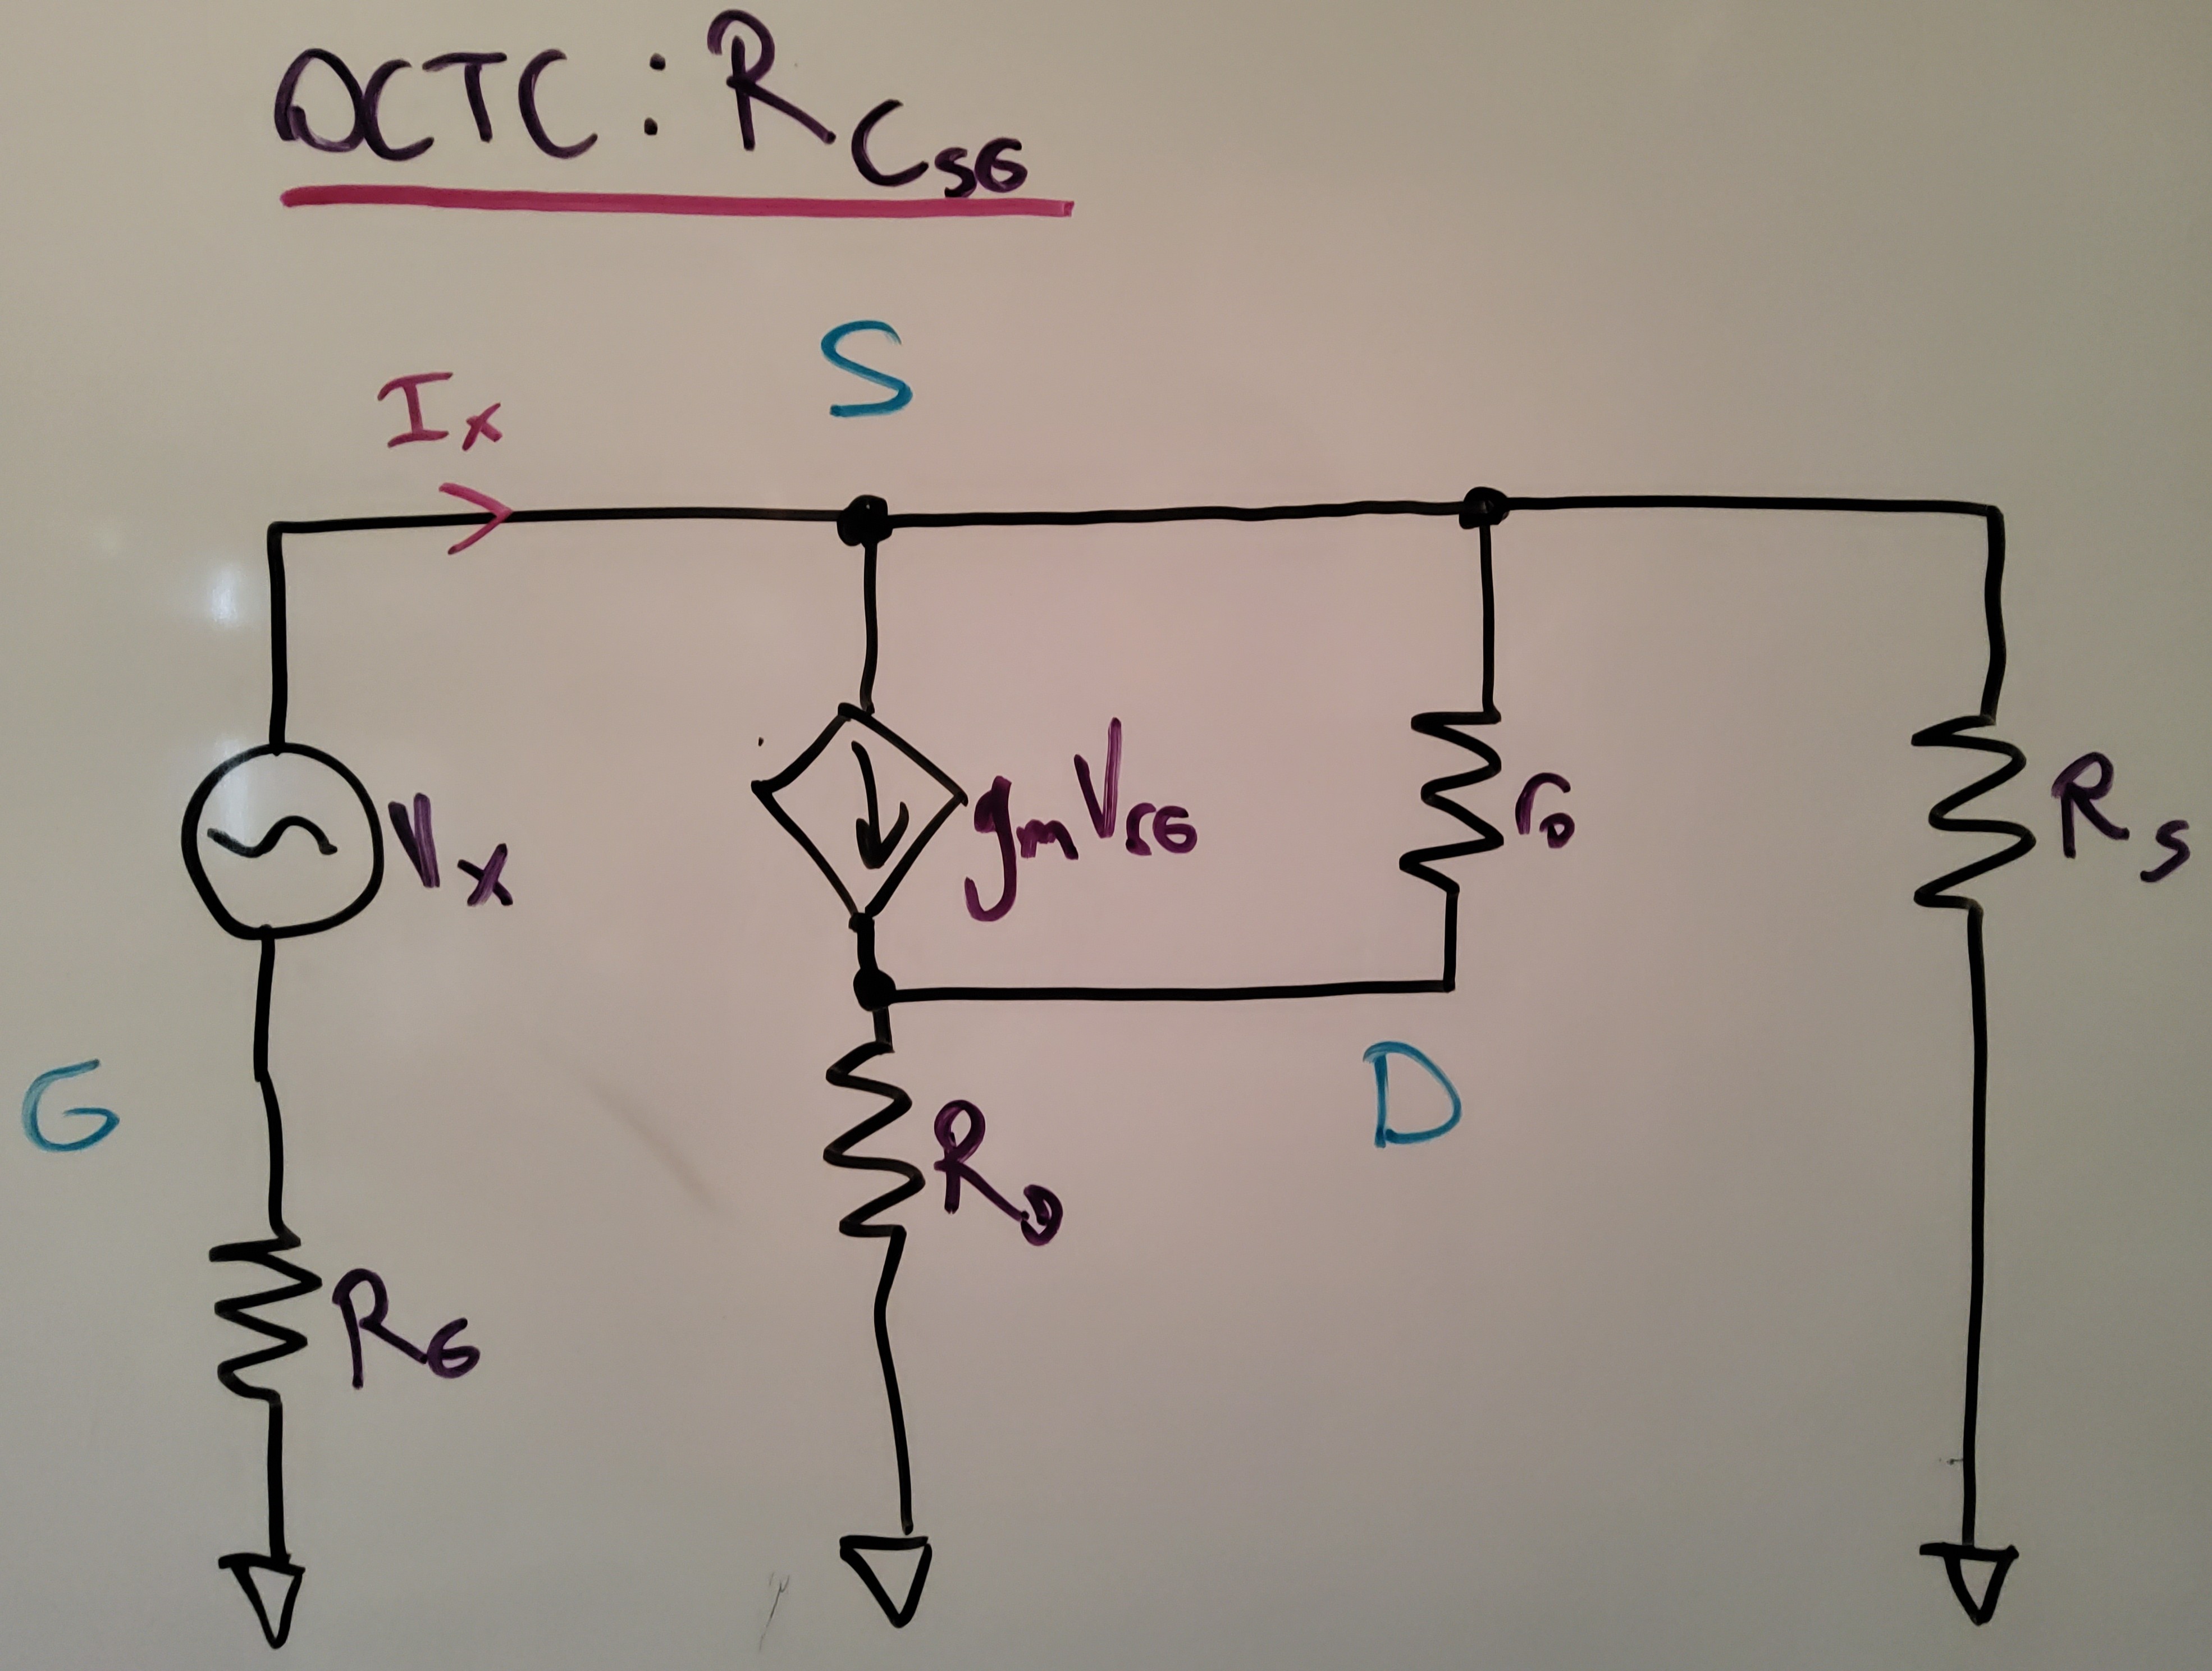 OCTC: RCSG
S
Ix
Vx
gmVSG
ro
RS
G
D
RD
RG